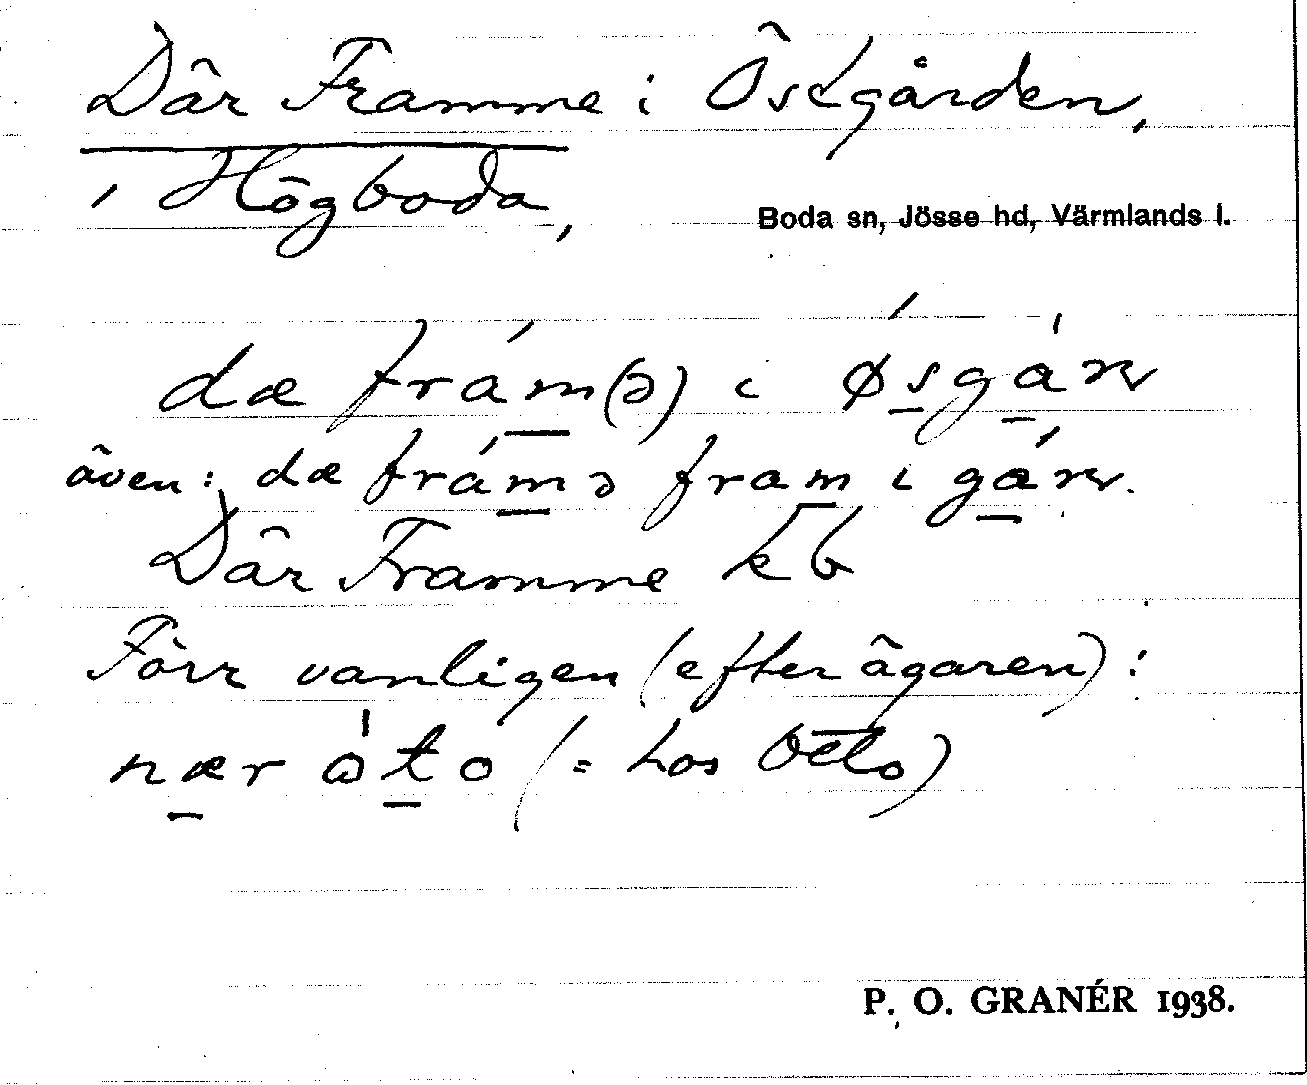 Där Framme i Östgården,
i Högboda,
Boda sn, Jösse hd, Värmlands l.
dæ frám(ə) i øsgárn
även: dæ frámə fram i gárn.
Där Framme kb
Förr vanligen (efter ägaren):
nær
(= hos
P. O. GRANÉR 1938.